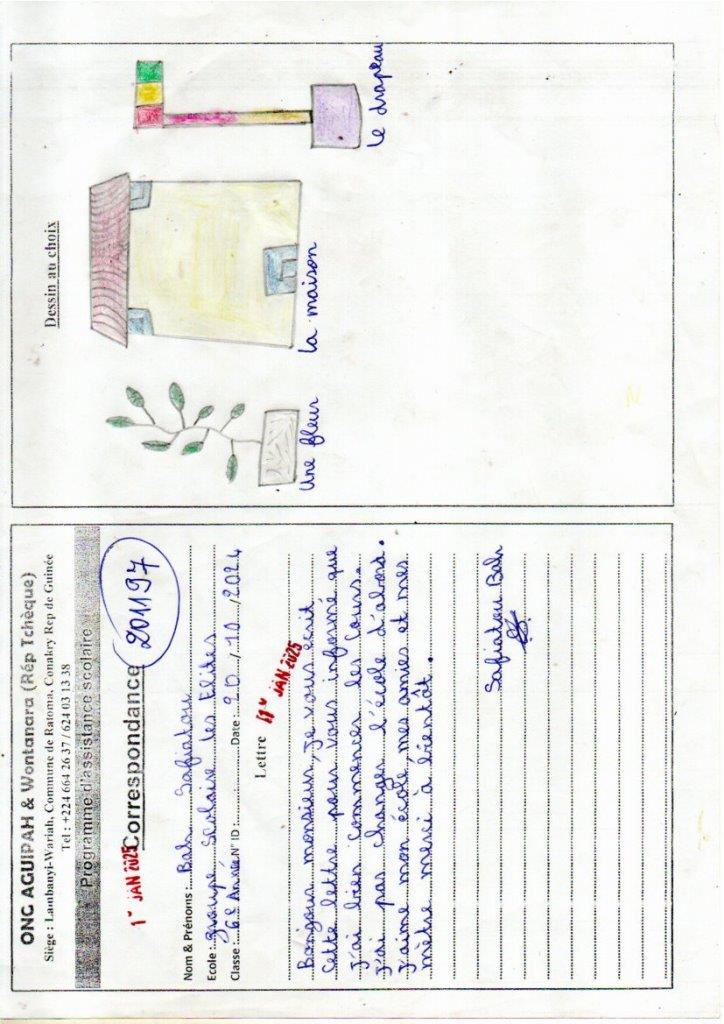 ONG AGUIPAH & Wontanara (Rép Tchèque)
Siège : Lambanyi-Wariah, Commune de Ratoma, Conakry Rep de Guinée
Tel : +224 664 26 37 / 624 03 13 38
Programme d'assistance scolaire
1er JAN 2025
Correspondance
201197
Nom & Prénoms : Bah Safiatou
Ecole : groupé Scolaire les Elites
Classe : 6e Année N° ID : Date : 20 / 10 / 2024
Lettre 1er JAN 2025
Bonjour monsieur, je vous écrit
cette lettre pour vous informé que
j'ai bien commencés les cours.
j'ai pas changer l'école d'abord.
j'aime mon école, mes amies et mes
mètre merci à bientôt.
Safiatou Bah
Dessin au choix
Une fleur
la maison
le drapeau